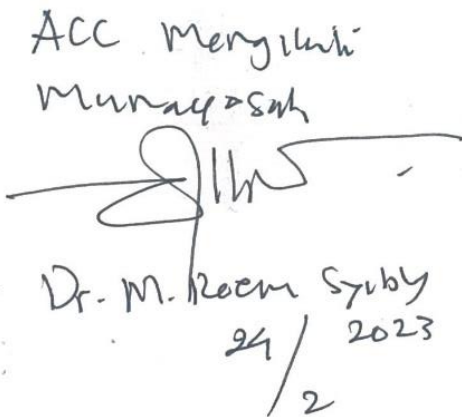 ACC Mengikuti
Munaqosah
Dr. M. Roem Syibly
24/2 2023